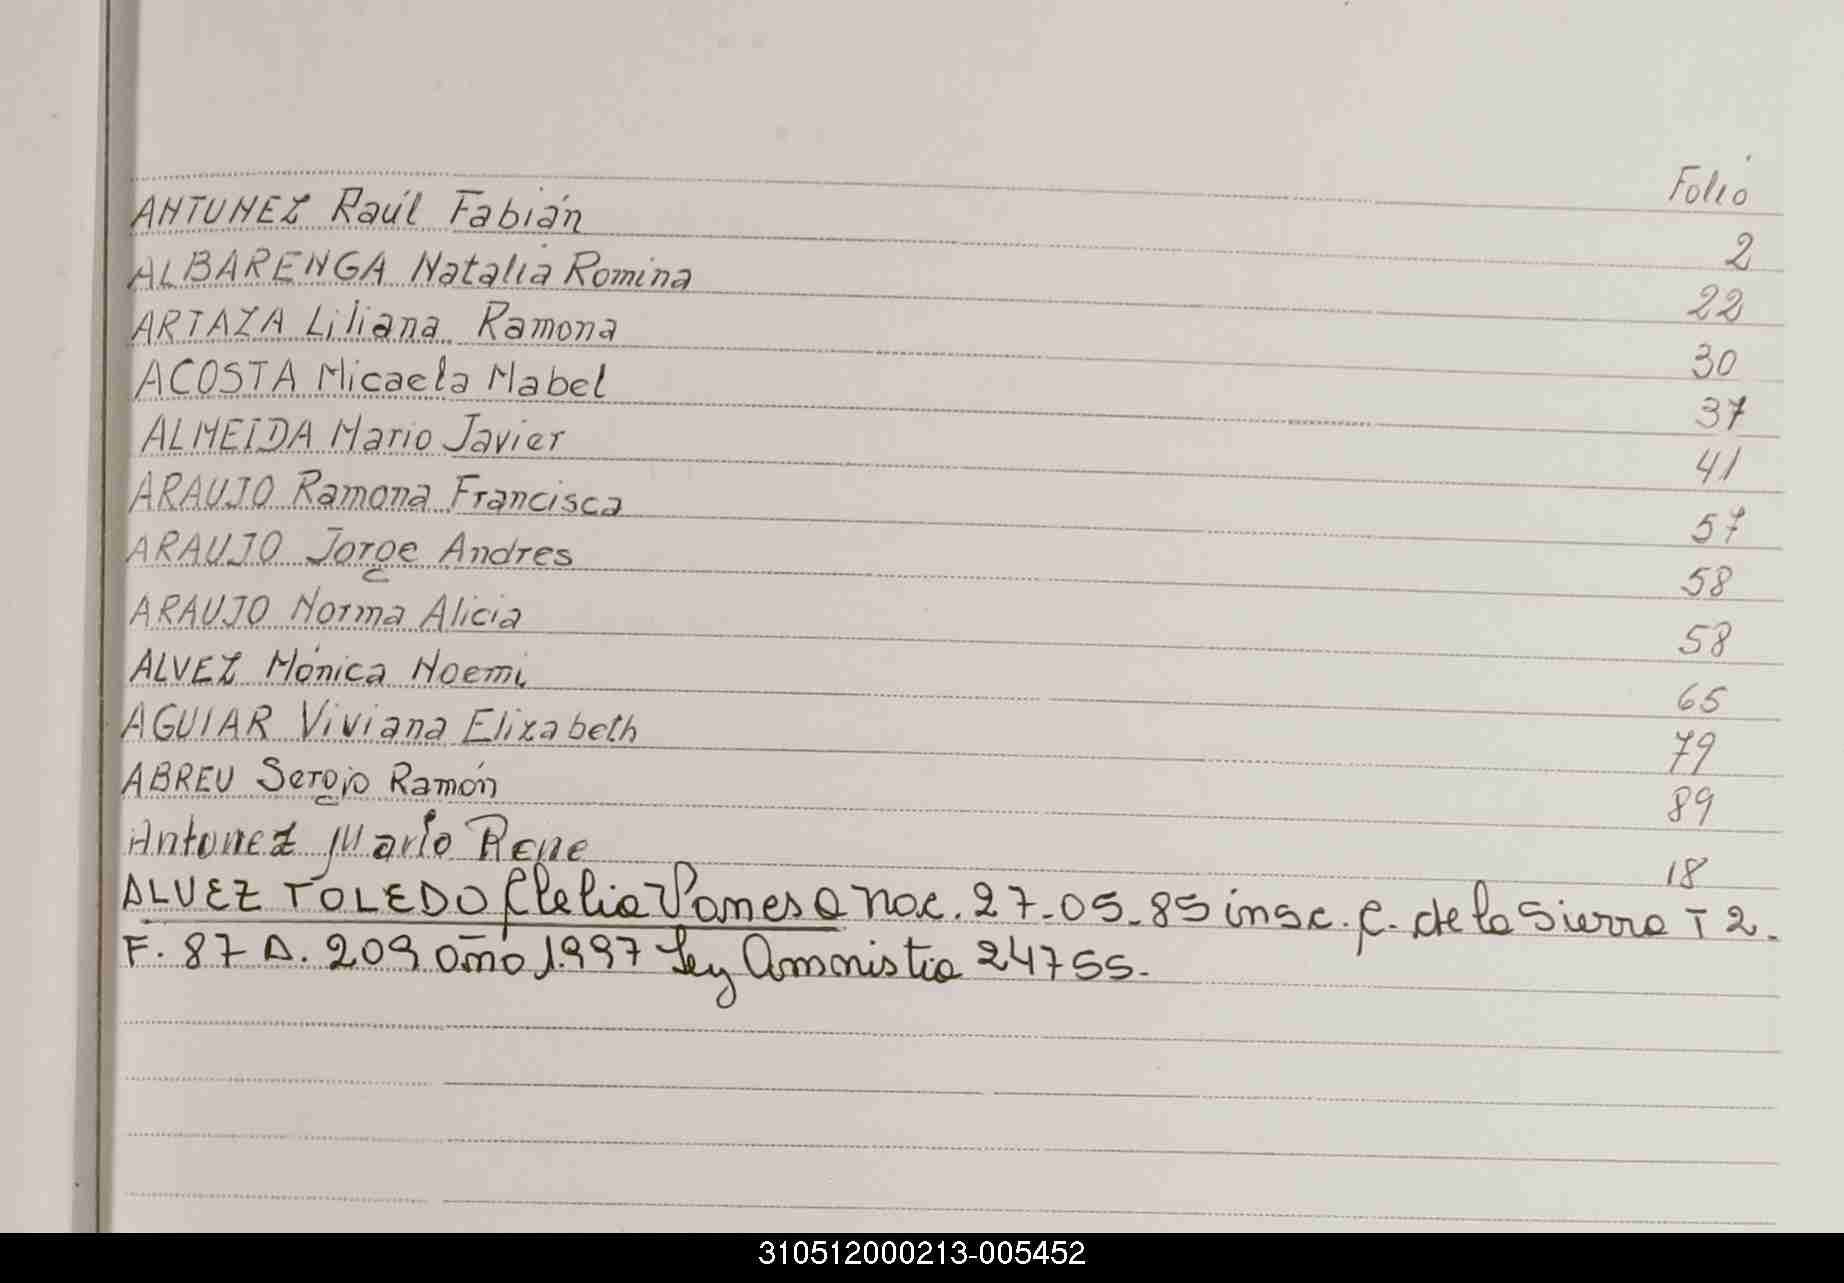 Folio
ANTUNEZ Raúl Fabián 2
ALBARENGA Natalia Romina 22
ARTAZA Liliana Ramona 30
ACOSTA Micaela Mabel 37
ALMEIDA Mario Javier 41
ARAUJO Ramona Francisca 57
ARAUJO Jorge Andres 58
ARAUJO Norma Alicia 58
ALVEZ Mónica Noemi 65
AGUIAR Viviana Elizabeth 79
ABREU Sergio Ramón 89
Antunez Mario Rene 18
ALVEZ TOLEDO Clelia Vanesa nac. 27-05-85 insc. C. de la Sierra T 2.
F. 87 A. 209 año 1.997 Ley Amnistia 24755.
310512000213-005452